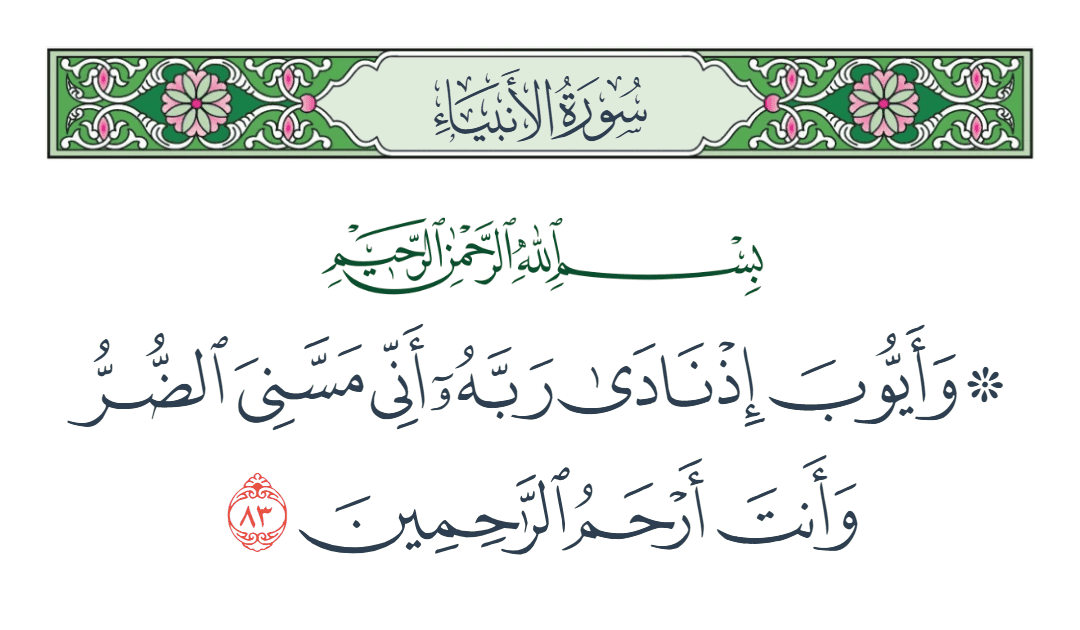 سُورَةُ الأَنبِيَاءِ
بِسْمِ ٱللَّهِ ٱلرَّحْمَٰنِ ٱلرَّحِيمِ
۞ وَأَيُّوبَ إِذْ نَادَىٰ رَبَّهُۥٓ أَنِّى مَسَّنِىَ ٱلضُّرُّ
وَأَنتَ أَرْحَمُ ٱلرَّٰحِمِينَ ٨٣